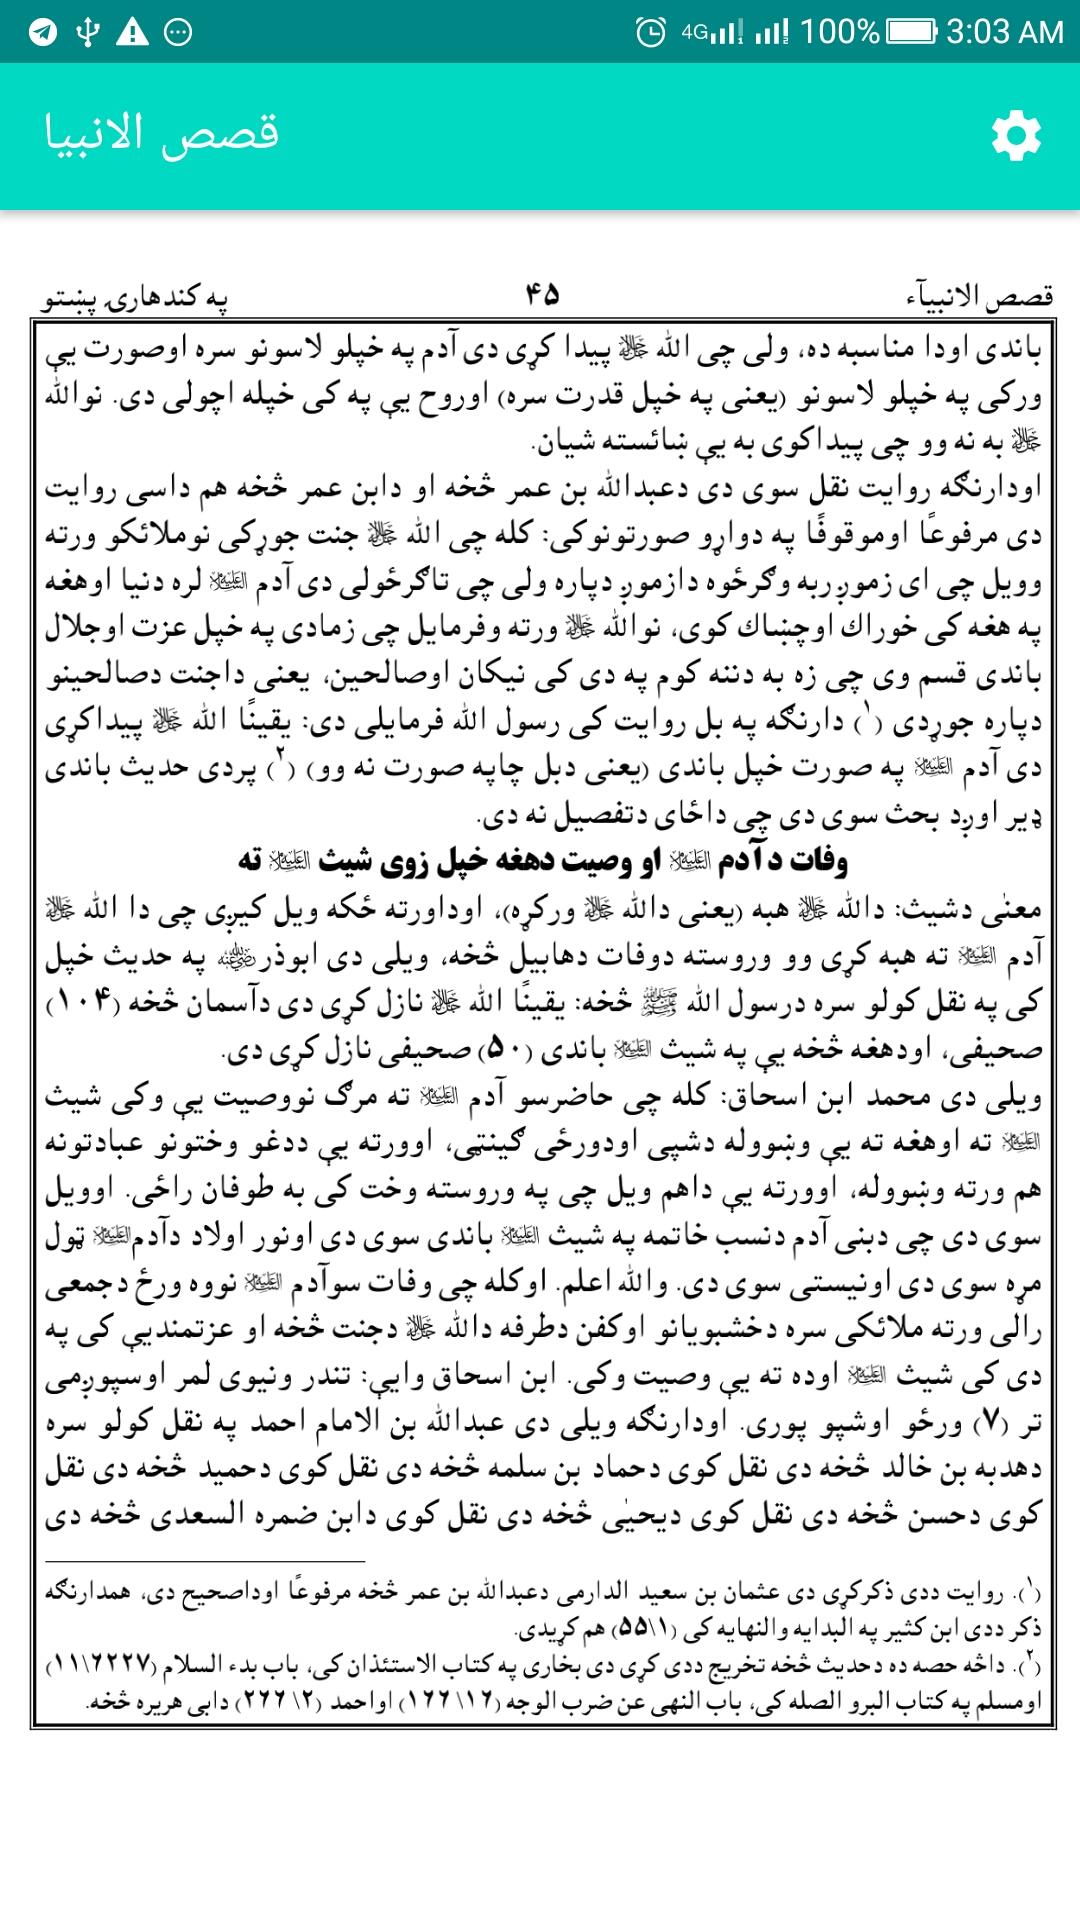 3:03 AM
100%
4G
قصص الانبيا
قصص الانبيآء
۴۵
په کندهاری پښتو
باندی اودا مناسبه ده، ولی چی الله ﷻ پيدا کړی دی آدم په خپلو لاسونو سره اوصورت يې
ورکی په خپلو لاسونو (يعنی په خپل قدرت سره) اوروح يې په کی خپله اچولی دی. نوالله
ﷻ به نه وو چی پيداکوی به يې ښائسته شيان.
اودارنګه روايت نقل سوی دی دعبدالله بن عمر څخه او دابن عمر څخه هم داسی روايت
دی مرفوعًا اوموقوفًا په دواړو صورتونوکی: کله چی الله ﷻ جنت جوړکی نوملائکو ورته
وويل چی ای زموږربه وګرځوه دازموږ دپاره ولی چی تاګرځولی دی آدم عليه السلام لره دنيا اوهغه
په هغه کی خوراك اوچښاك کوی، نوالله ﷻ ورته وفرمايل چی زمادی په خپل عزت اوجلال
باندی قسم وی چی زه به دننه کوم په دی کی نيکان اوصالحين، يعنی داجنت دصالحينو
دپاره جوړدی (۱) دارنګه په بل روايت کی رسول الله فرمايلی دی: يقينًا الله ﷻ پيداکړی
دی آدم عليه السلام په صورت خپل باندی (يعنی دبل چاپه صورت نه وو) (۲) پردی حديث باندی
ډير اوږد بحث سوی دی چی داځای دتفصيل نه دی.
وفات د آدم عليه السلام او وصيت دهغه خپل زوی شيث عليه السلام ته
معنٰی دشيث: دالله ﷻ هبه (يعنی دالله ﷻ ورکړه)، اوداورته ځکه ويل کيږی چی دا الله ﷻ
آدم عليه السلام ته هبه کړی وو وروسته دوفات دهابيل څخه، ويلی دی ابوذر رضی الله عنه په حديث خپل
کی په نقل کولو سره درسول الله ﷺ څخه: يقينًا الله ﷻ نازل کړی دی دآسمان څخه (۱۰۴)
صحيفی، اودهغه څخه يې په شيث عليه السلام باندی (۵۰) صحيفی نازل کړی دی.
ويلی دی محمد ابن اسحاق: کله چی حاضرسو آدم عليه السلام ته مرګ نووصيت يې وکی شيث
عليه السلام ته اوهغه ته يې وښووله دشپی اودورځی ګينټی، اوورته يې ددغو وختونو عبادتونه
هم ورته وښووله، اوورته يې داهم ويل چی په وروسته وخت کی به طوفان راځی. اوويل
سوی دی چی دبنی آدم دنسب خاتمه په شيث عليه السلام باندی سوی دی اونور اولاد دآدم عليه السلام ټول
مړه سوی دی اونيستی سوی دی. والله اعلم. اوکله چی وفات سوآدم عليه السلام نووه ورځ دجمعی
رالی ورته ملائکی سره دخشبويانو اوکفن دطرفه دالله ﷻ دجنت څخه او عزتمنديې کی په
دی کی شيث عليه السلام اوده ته يې وصيت وکی. ابن اسحاق وايې: تندر ونيوی لمر اوسپوږمی
تر (۷) ورځو اوشپو پوری. اودارنګه ويلی دی عبدالله بن الامام احمد په نقل کولو سره
دهدبه بن خالد څخه دی نقل کوی دحماد بن سلمه څخه دی نقل کوی دحميد څخه دی نقل
کوی دحسن څخه دی نقل کوی ديحيٰی څخه دی نقل کوی دابن ضمره السعدی څخه دی
(۱). روايت ددی ذکرکړی دی عثمان بن سعيد الدارمی دعبدالله بن عمر څخه مرفوعًا اوداصحيح دی، همدارنګه
ذکر ددی ابن کثير په البدايه والنهايه کی (۱\۵۵) هم کړيدی.
(۲). داڅه حصه ده دحديث څخه تخريج ددی کړی دی بخاری په کتاب الاستئذان کی، باب بدء السلام (۱۱\۶۲۲۷)
اومسلم په کتاب البرو الصله کی، باب النهی عن ضرب الوجه (۱۶\۱۶۶) اواحمد (۲\۲۶۶) دابی هريره څخه.